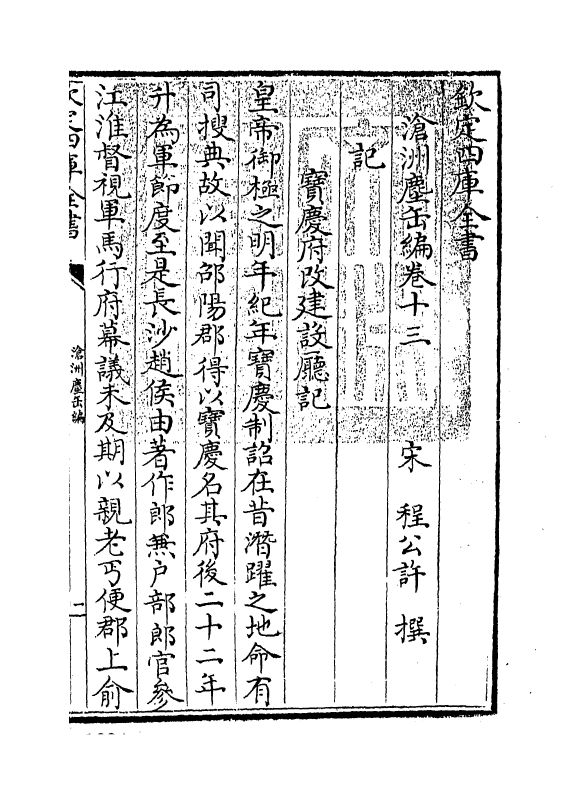 欽定四庫全書
滄洲塵缶編卷十三　宋　程公許　撰
記
寶慶府改建設廳記
皇帝御極之明年紀年寶慶制詔在昔潛躍之地命有
司搜典故以聞邵陽郡得以寶慶名其府後二十二年
升為軍節度至是長沙趙侯由著作郎兼戶部郎官參
江淮督視軍馬行府幕議未及期以親老丐便郡上俞
欽定四庫全書
滄洲塵缶編